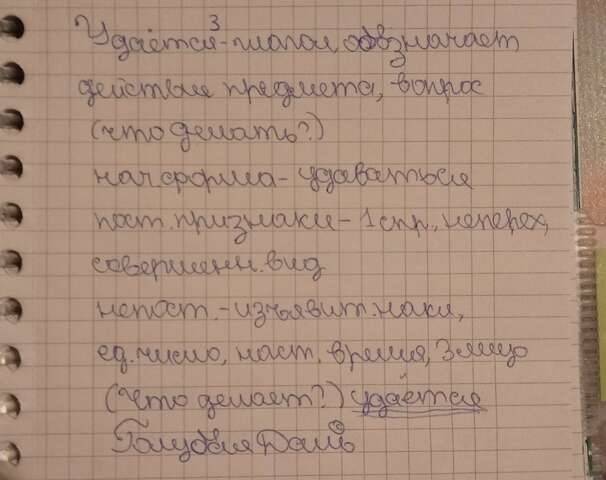 Удаётся³-глагол, обозначает
действие предмета, вопрос
(что делать?)
нач.форма-удаваться
пост.признаки-1спр., неперех,
совершенн.вид
непост.-изъявит.накл,
ед.число, наст. время, 3лицо
(Что делает?) удаётся
Голубая Даль³